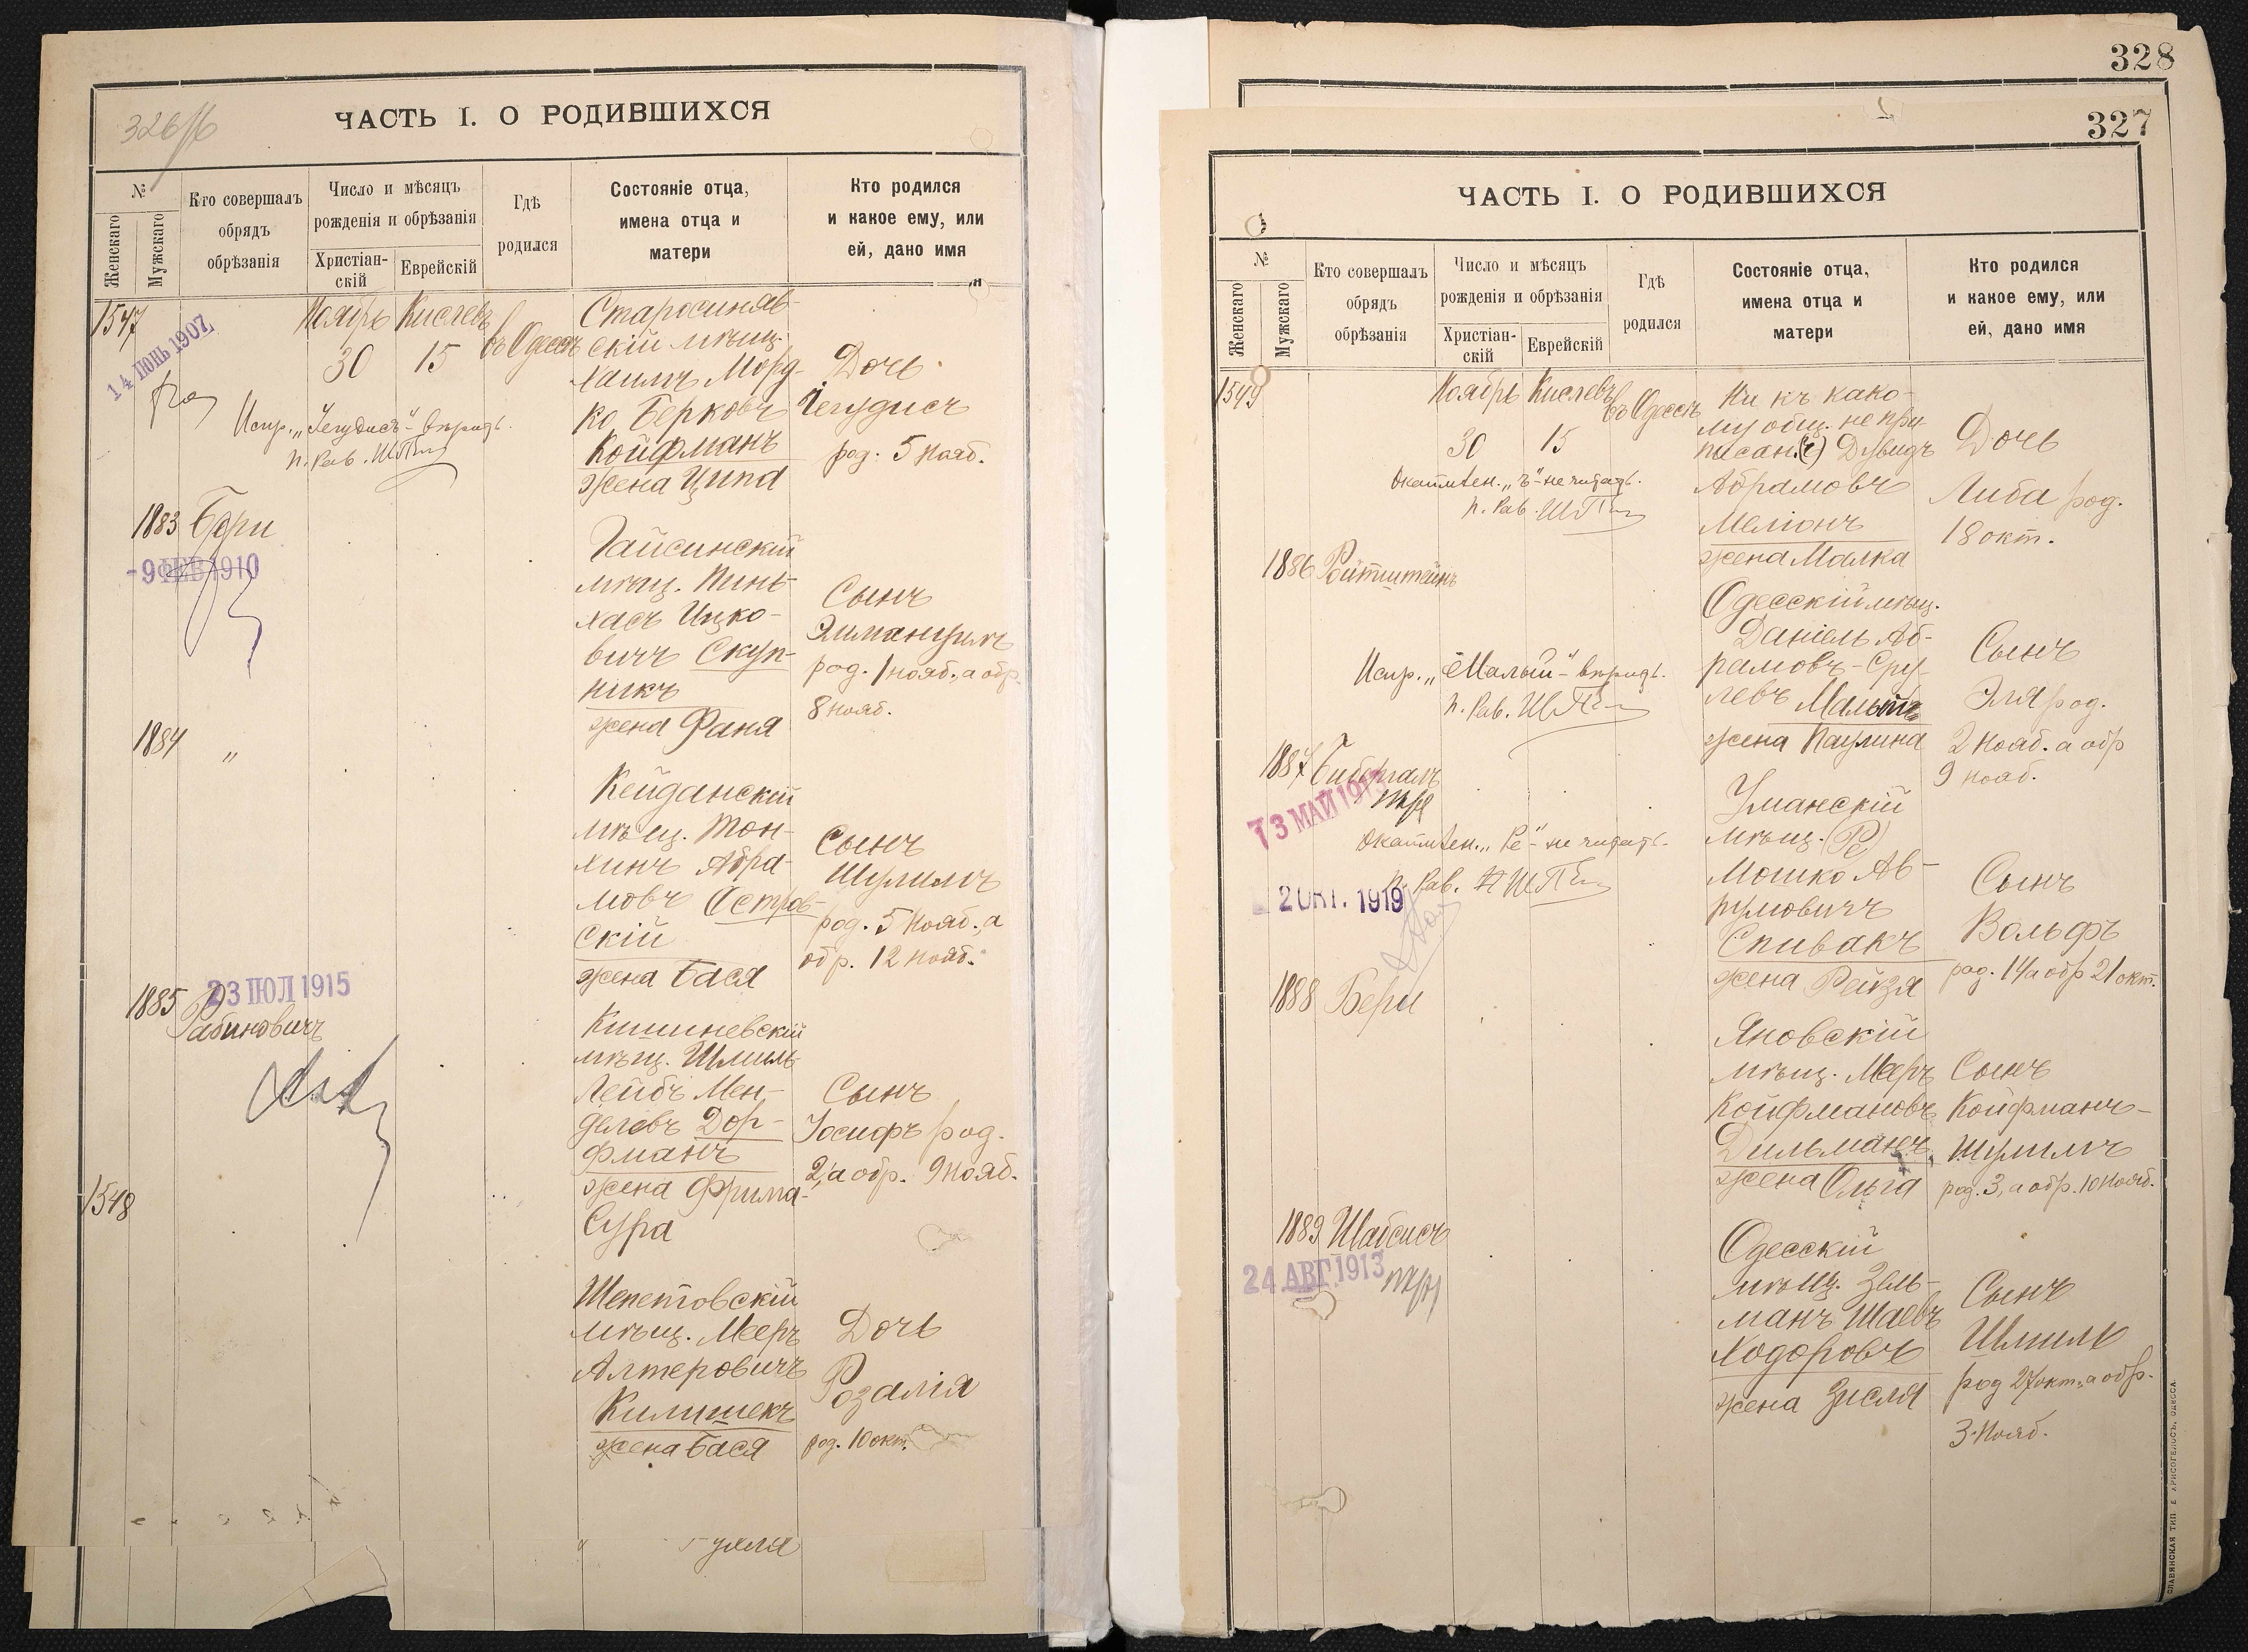 326/б
ЧАСТЬ I. О РОДИВШИХСЯ
№
Женскаго
Мужскаго
Кто совершалъ
обрядъ
обрѣзанія
Число и мѣсяцъ
рожденія и обрѣзанія
Христіан-
скій
Еврейскій
Гдѣ
родился
Состояніе отца,
имена отца и
матери
Кто родился
и какое ему, или
ей, дано имя
1547
14 ІЮНЬ 1907
Ноябрь Кислевъ
30 15
въ Одессѣ
Старосиняв-
скій мѣщ.
Хаимъ Морд-
ко Берковъ
Койфманъ
жена Ципа
Дочь
Іегудисъ
род. 5 Нояб.
Испр. „Іегудисъ“ - вѣрить.
п. Рав.
1883 Бери
-9 ФЕВ 1910
Гайсинскій
мѣщ. Пинь-
хасъ Ицко-
вичъ Скуп-
никъ
жена Фаня
Сынъ
Элимануилъ
род. 1 нояб., а обр.
8 нояб.
1884 „
Кейданскій
мѣщ. Тон-
хинъ Абра-
мовъ Остров-
скій
жена Бася
Сынъ
Шулимъ
род. 5 Нояб., а
обр. 12 нояб.
23 ІЮЛ 1915
1885 Рабиновичъ
Кишиневскій
мѣщ. Шмиль
Лейбъ Мен-
делевъ Дор-
фманъ
жена Фрима-
Сура
Сынъ
Іосифъ род.
2, а обр. 9 Нояб.
1548
Шепетовскій
мѣщ. Мееръ
Алтеровичъ
Килишекъ
жена Бася
Дочь
Розалія
род. 10 окт.
328
327
ЧАСТЬ I. О РОДИВШИХСЯ
№
Женскаго
Мужскаго
Кто совершалъ
обрядъ
обрѣзанія
Число и мѣсяцъ
рожденія и обрѣзанія
Христіан-
скій
Еврейскій
Гдѣ
родился
Состояніе отца,
имена отца и
матери
Кто родился
и какое ему, или
ей, дано имя
1549
Ноябрь Кислевъ
30 15
въ Одессѣ
Ни къ како-
му общ. не при
писан.(ъ) Дувидъ
Абрамовъ
Меліонъ
жена Малка
Дочь
Либа род.
18 окт.
„ъ“ - не читать.
п. Рав.
1886 Ройтштейнъ
Одесскій мѣщ.
Даніель Аб-
рамовъ-Сру-
левъ Малый
жена Паулина
Сынъ
Эля род.
2 Нояб. а обр
9 нояб.
Испр. „Малый“ - вѣрить.
п. Рав.
1887 Бибергалъ
13 МАЙ 1913
Уманскій
мѣщ. (Ре)
Мошко Ав-
румовичъ
Спивакъ
жена Рейзя
Сынъ
Вольфъ
род. 14 а обр 21 окт.
„Ре“ - не читать.
п. Рав.
2 ОКТ. 1919
1888 Бери
Яновскій
мѣщ. Мееръ
Койфмановъ
Дильманъ
жена Ольга
Сынъ
Койфманъ-
Шулимъ
род. 3, а обр. 10 Нояб.
1889 Шабсисъ
24 АВГ. 1913
Одесскій
мѣщ. Зель-
манъ Шаевъ
Ходоровъ
жена Зисля
Сынъ
Шмиль
род 27 окт., а обр.
3 Нояб.
СЛАВЯНСКАЯ ТИП. Е. ХРИСОГЕЛОСЪ, ОДЕССА.